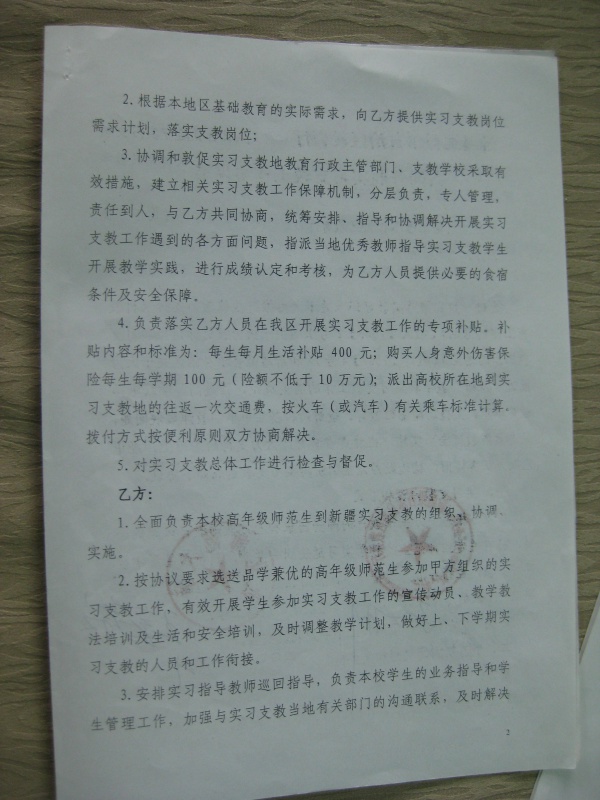 2. 根据本地区基础教育的实际需求，向乙方提供实习支教岗位
需求计划，落实支教岗位；
3. 协调和敦促实习支教地教育行政主管部门、支教学校采取有
效措施，建立相关实习支教工作保障机制，分层负责，专人管理，
责任到人，与乙方共同协商，统筹安排、指导和协调解决开展实习
支教工作遇到的各方面问题，指派当地优秀教师指导实习支教学生
开展教学实践，进行成绩认定和考核，为乙方人员提供必要的食宿
条件及安全保障。
4. 负责落实乙方人员在我区开展实习支教工作的专项补贴。补
贴内容和标准为：每生每月生活补贴 400 元；购买人身意外伤害保
险每生每学期 100 元（险额不低于 10 万元）；派出高校所在地到实
习支教地的往返一次交通费，按火车（或汽车）有关乘车标准计算。
拨付方式按便利原则双方协商解决。
5. 对实习支教总体工作进行检查与督促。
乙方：
1. 全面负责本校高年级师范生到新疆实习支教的组织、协调、
实施。
2. 按协议要求选送品学兼优的高年级师范生参加甲方组织的实
习支教工作，有效开展学生参加实习支教工作的宣传动员、教学教
法培训及生活和安全培训，及时调整教学计划，做好上、下学期实
习支教的人员和工作衔接。
3. 安排实习指导教师巡回指导，负责本校学生的业务指导和学
生管理工作，加强与实习支教当地有关部门的沟通联系，及时解决
2